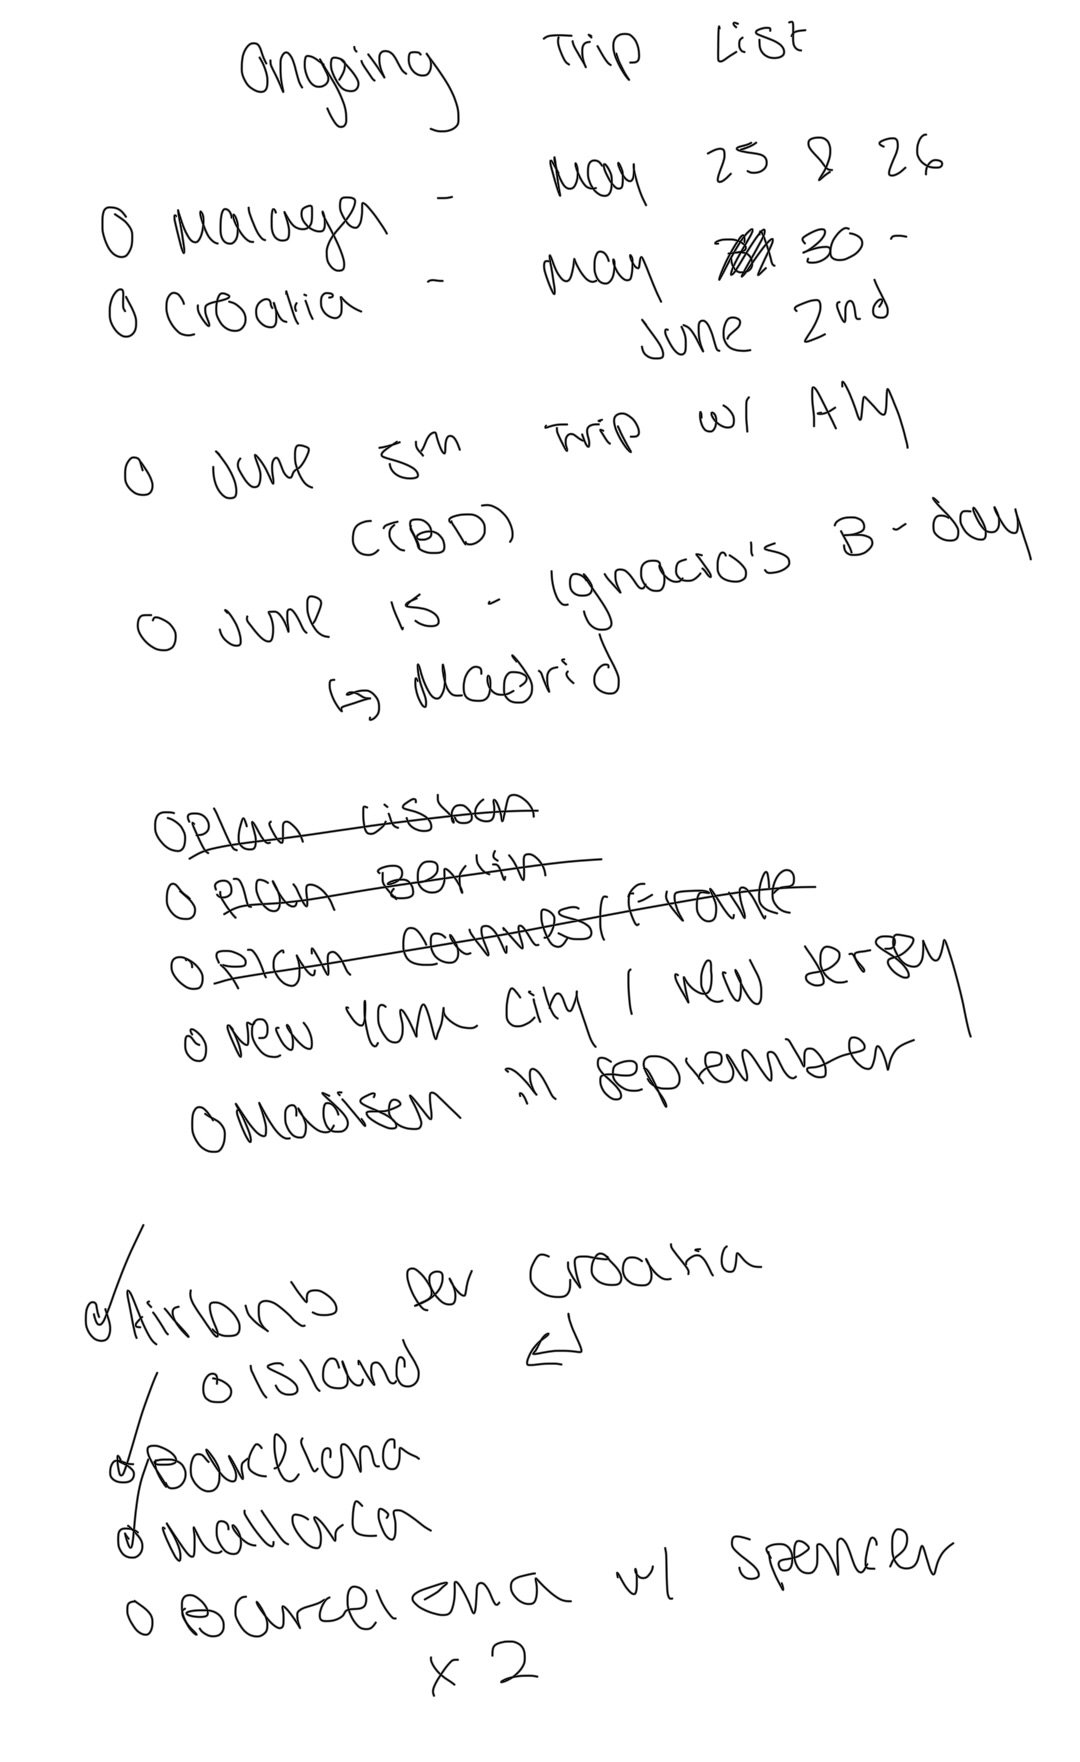 Ongoing Trip List
O Malaga - May 25 & 26
O Croatia - May 30 -
June 2nd
O June 5th Trip w/ Aly
(TBD)
O June 15 - Ignacio's B-day
↳ Madrid
O Plan Lisbon
O Plan Berlin
O Plan Cannes/France
O New York City / New Jersey
O Madison in September
O Airbnb for Croatia
O Island ↵
O Barcelona
O Mallorca
O Barcelona w/ Spencer
x 2